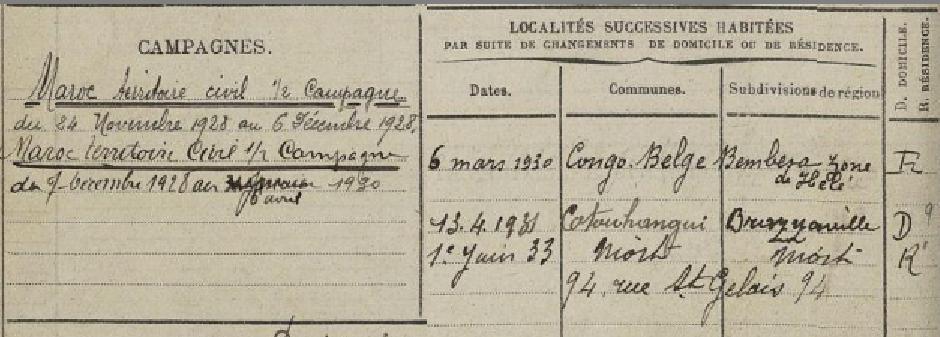 CAMPAGNES.
Maroc territoire civil 1/2 Campagne
du 24 Novembre 1928 au 6 Décembre 1928,
Maroc territoire Civil 1/2 Campagne
du 7 Décembre 1928 au 1930
6 avril
LOCALITÉS SUCCESSIVES HABITÉES
PAR SUITE DE CHANGEMENTS DE DOMICILE OU DE RÉSIDENCE.
Dates. Communes. Subdivisions de région
D. DOMICILE.
R. RÉSIDENCE.
6 mars 1930 Congo Belge Bembera Zone
de
13.4.1931 D
1er Juin 33 Niort Niort R
94 rue St Gelais 94